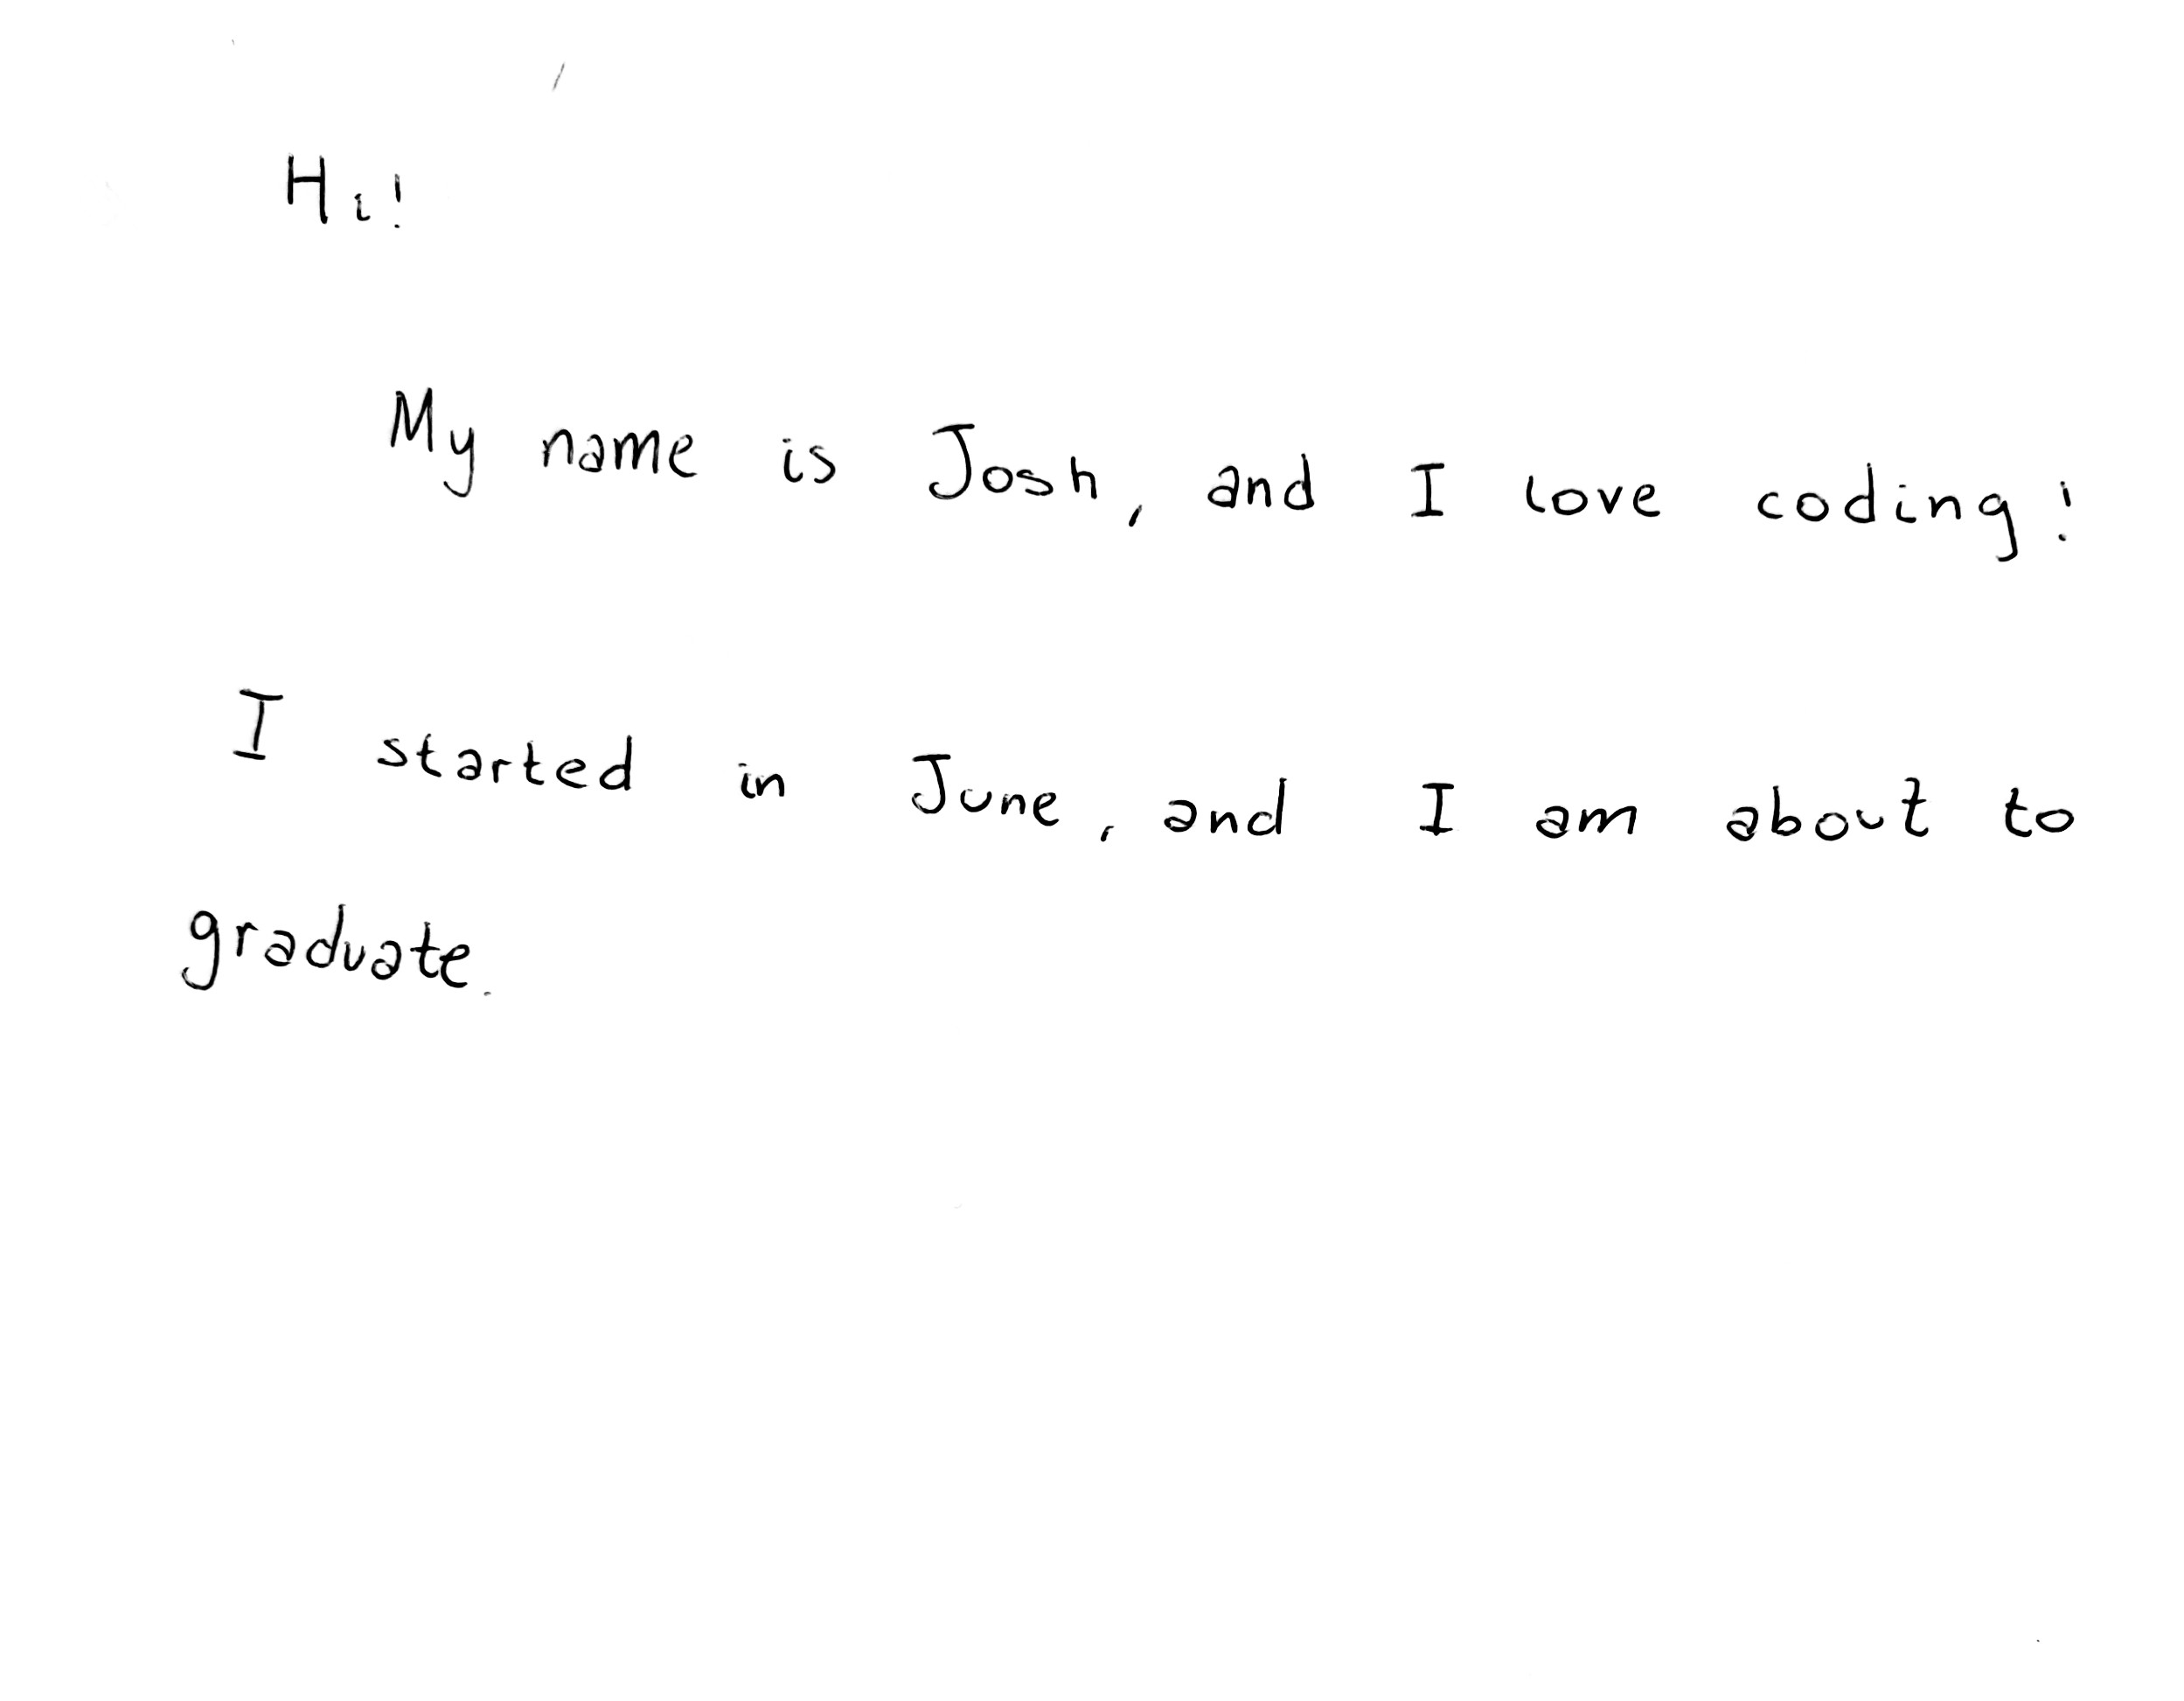 Hi!
My name is Josh, and I love coding!
I started in June, and I am about to
graduate.